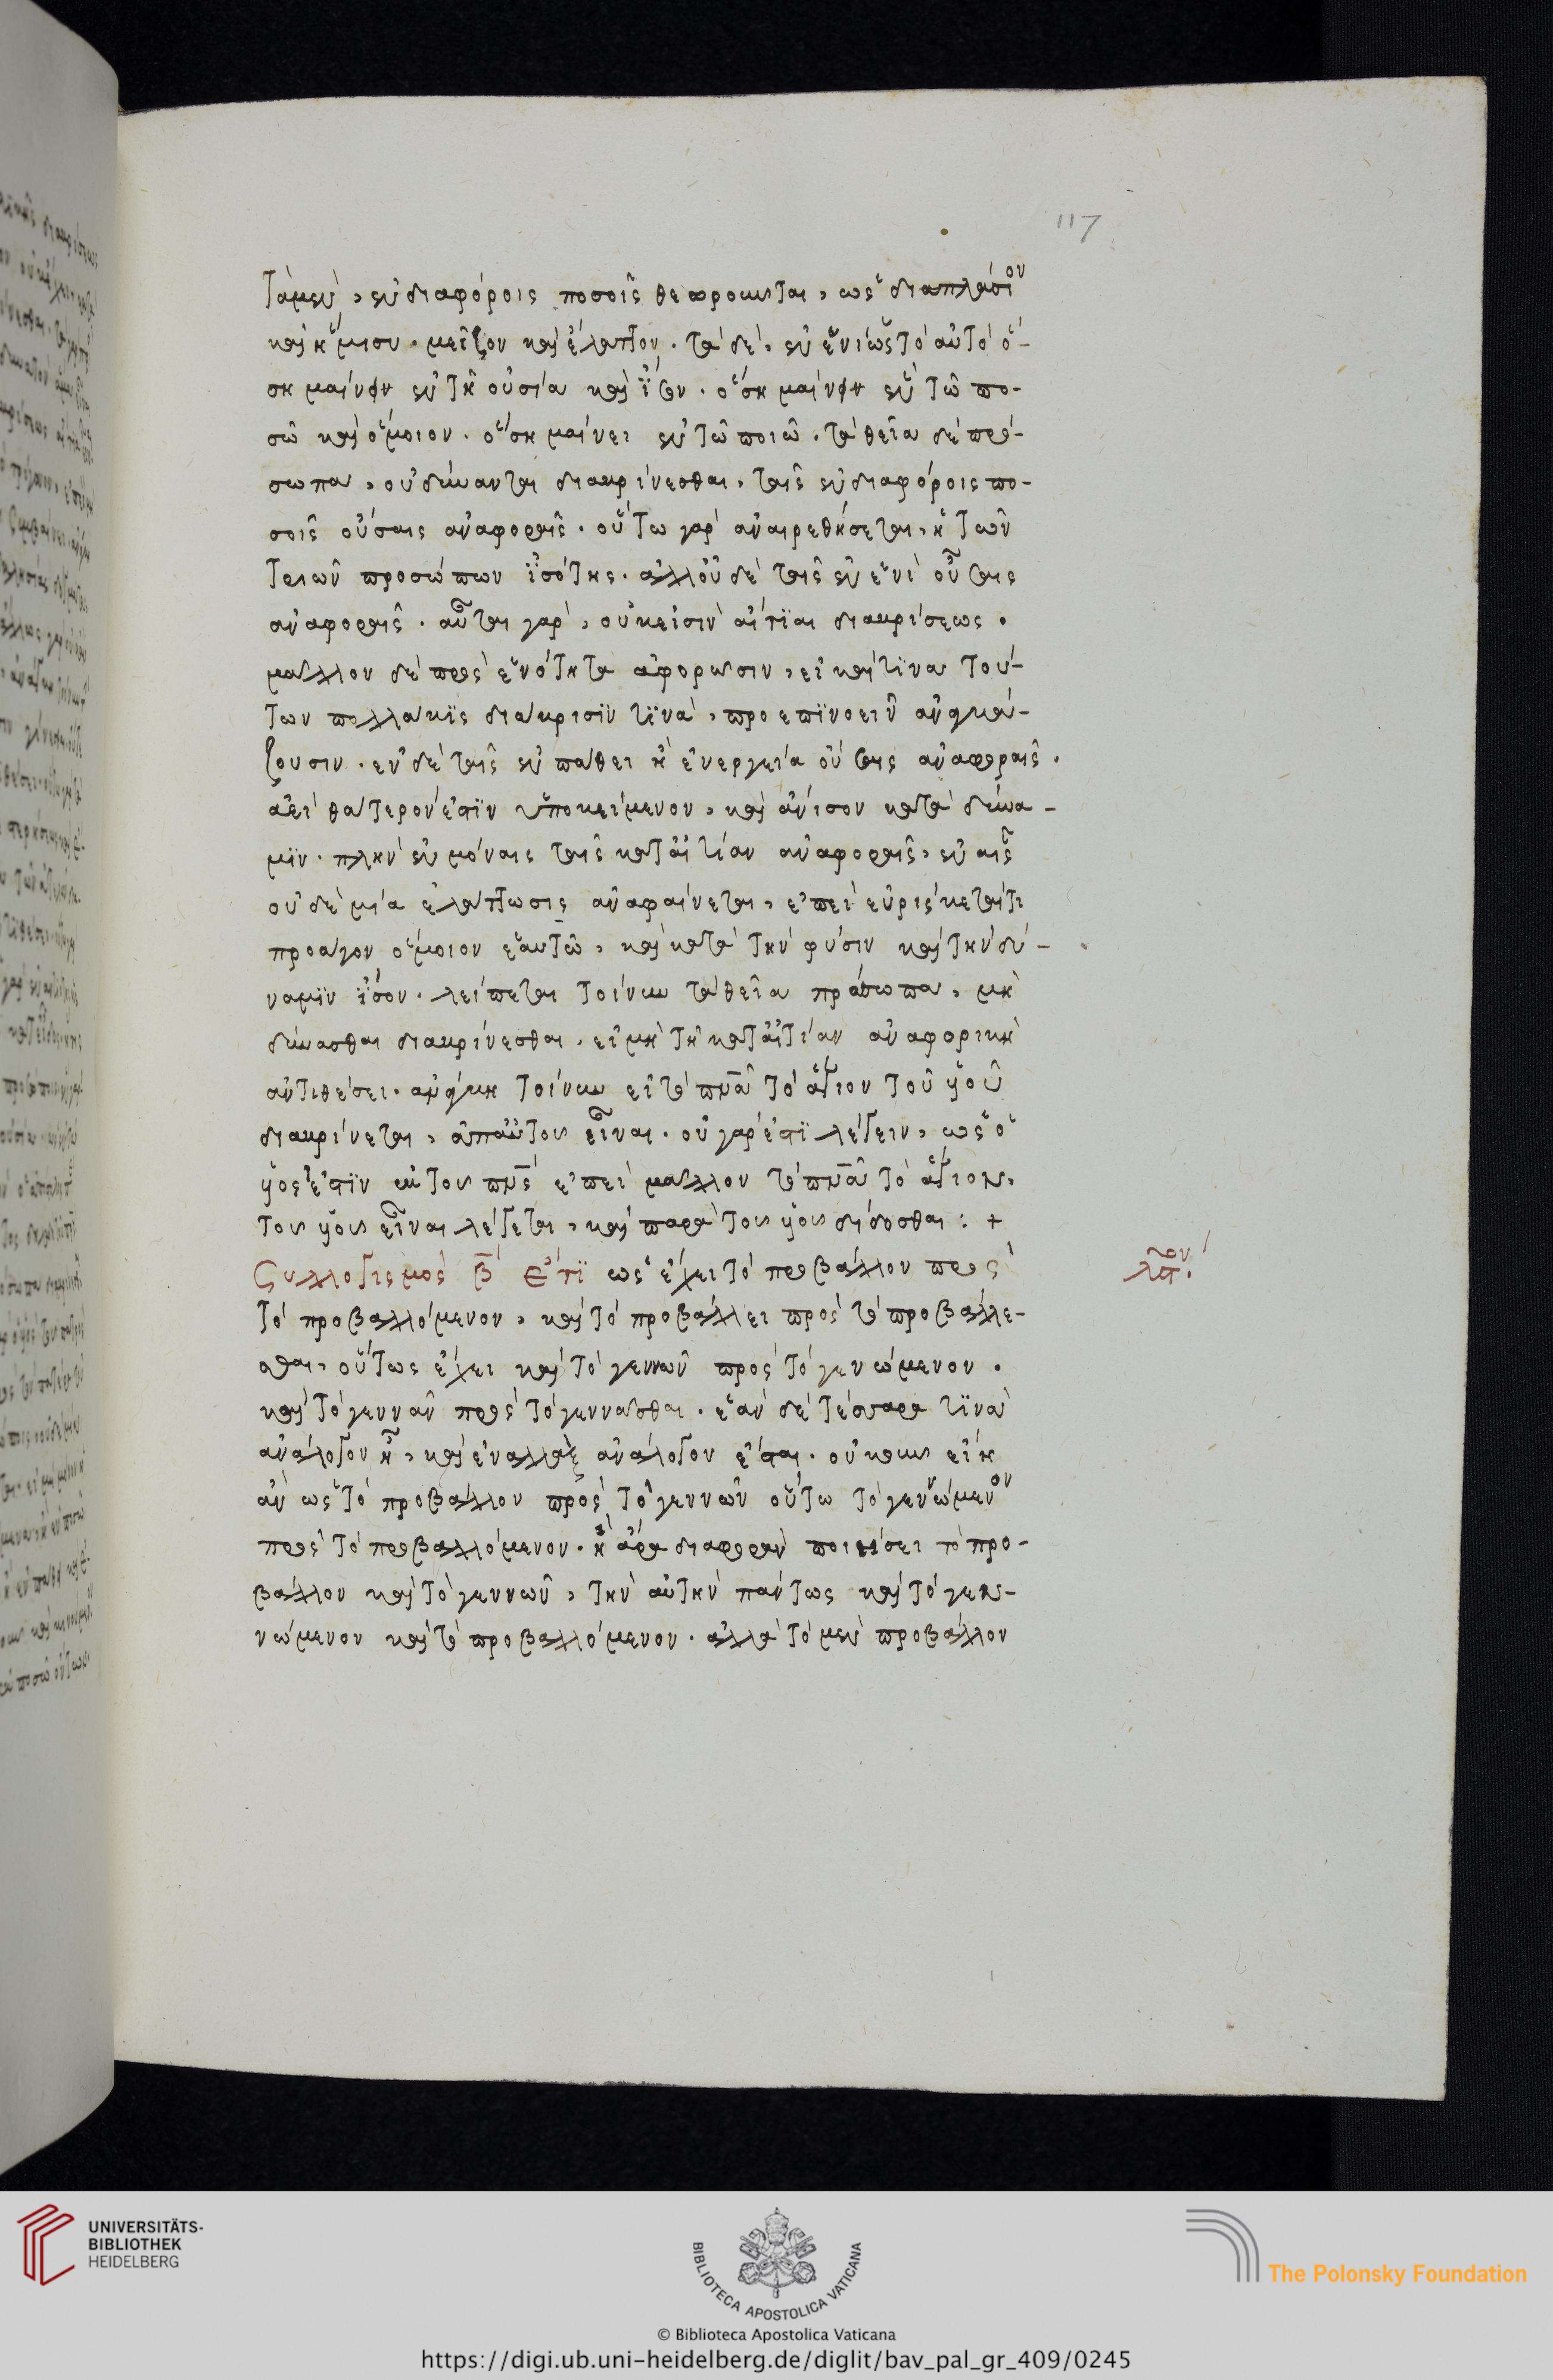 117
τὰ μὲν, ἐν διαφόροις ποσοῖς θεωροῦνται, ὡς διαπλάσιον
καὶ ἥμισυ. μεῖζον καὶ ἔλαττον. τὰ δὲ, ἐν ἑνὶ ὡς τὸ αὐτὸ ὃ
σημαίνει ἐν τῇ οὐσία καὶ ἴσον. ὃ σημαίνει ἐν τῷ πο-
σῶ καὶ ὅμοιον. ὃ σημαίνει ἐν τῶ ποιῶ. τὰ θεῖα δὲ πρό-
σωπα, οὐ δύνανται διακρίνεσθαι, ταῖς ἐν διαφόροις πο-
σοῖς οὔσαις ἀναφοραῖς. οὕτω γὰρ ἀναιρεθήσεται, ἡ τῶν
τριῶν προσώπων ἰσότης. ἀλλ' οὐδὲ ταῖς ἐν ἑνὶ οὔσαις
ἀναφοραῖς. αὗται γὰρ, οὐκ εἰσὶν αἴτιαι διακρίσεως.
μᾶλλον δὲ πρὸς ἑνότητα ἀφορῶσιν, εἰ καί τινα τού-
των πολλάκις διάκρισίν τινα, προεπινοεῖν ἀναγκά-
ζουσιν. ἐν δὲ ταῖς ἐν πάθει ἢ ἐνεργεία οὔσαις ἀναφοραῖς.
ἀεὶ θάτερον ἐστὶν ὑποκείμενον, καὶ ἄνισον κατὰ δύνα-
μιν. πλὴν ἐν μόναις ταῖς κατ' αἰτίαν ἀναφοραῖς, ἐν αἷς
οὐδὲ μία ἐλάττωσις ἀναφαίνεται, ἐπεὶ εὑρίσκεταί τι
προάγον ὅμοιον ἑαυτῶ, καὶ κατὰ τὴν φύσιν καὶ τὴν δύ-
ναμιν ἴσον. λείπεται τοίνυν τὰ θεῖα πρόσωπα, μὴ
δύνασθαι διακρίνεσθαι, εἰ μὴ τῆ κατ' αἰτίαν ἀναφορικῆ
ἀντιθέσει. ἀνάγκη τοίνυν εἰ τὸ πνᾶ τὸ ἅγιον τοῦ υἱοῦ
διακρίνεται, ἀπ' αὐτοῦ εἶναι. οὐ γάρ ἐστι λέγειν, ὡς ὁ
υἱός ἐστιν ἐκ τοῦ πνς ἐπεὶ μᾶλλον τὸ πνᾶ τὸ ἅγιον,
τοῦ υἱοῦ εἶναι λέγεται, καὶ παρὰ τοῦ υἱοῦ δίδοσθαι: +
Συλλογισμὸς β Ἔτι ὡς ἔχει τὸ προβάλλον πρὸς
τὸ προβαλλόμενον, καὶ τὸ προβάλλει πρὸς τὸ προβάλλε-
σθαι, οὕτως ἔχει καὶ τὸ γεννῶν πρὸς τὸ γενώμενον.
καὶ τὸ γεννᾶν πρὸς τὸ γεννᾶσθαι. ἐὰν δὲ τέσσαρα τινὰ
ἀνάλογον ἦ, καὶ ἐναλλὰξ ἀνάλογον ἔσται. οὐκοῦν εἴη
ἂν ὡς τὸ προβάλλον πρὸς τὸ γεννῶν οὕτω τὸ γεννώμενον
πρὸς τὸ προβαλλόμενον. ἣ ἄρα διαφορὰν ποιήσει τὸ προ-
βάλλον καὶ τὸ γεννῶν, τὴν αὐτὴν πάντως καὶ τὸ γεν-
νώμενον καὶ τὸ προβαλλόμενον. ἀλλὰ τὸ μὲν προβάλλον
UNIVERSITÄTS-
BIBLIOTHEK
HEIDELBERG
BIBLIOTECA APOSTOLICA VATICANA
The Polonsky Foundation
© Biblioteca Apostolica Vaticana
https://digi.ub.uni-heidelberg.de/diglit/bav_pal_gr_409/0245